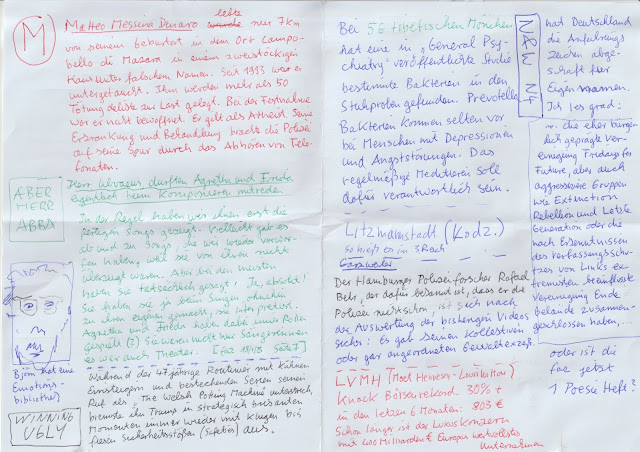 M
Matteo Messina Denaro lebte nur 7km
von seinem Geburtsort in dem Ort Campo-
bello di Mazara in einem zweistöckigen
Haus unter falschem Namen. Seit 1993 war er
untergetaucht. Ihm werden mehr als 50
Tötungsdelikte zur Last gelegt. Bei der Festnahme
war er nicht bewaffnet. Er gilt als Atheist. Seine
Erkrankung und Behandlung brachte die Polizei
auf seine Spur durch das Abhören von Tele-
fonaten.
ABER
HERR
ABBA
Herr Ulvaeus durften Agnetha und Frida
eigentlich beim Komponieren mitreden
In der Regel haben wir ihnen erst die
fertigen Songs gezeigt. Vielleicht gab es
ab und zu Songs, die wir wieder verwor-
fen haben, weil sie von ihnen nicht
überzeugt waren. Aber bei den meisten
haben sie tatsächlich gesagt: Ja, absolut!
Sie haben sie ja beim Singen ohnehin
zu ihren eigenen gemacht, sie interpretiert.
Agnetha und Frida haben dabei immer Rollen
gespielt (?) Sie waren nicht nur Sängerinnen
es war auch Theater. [faz Seite 7]
Björn hat eine
Emotions-
bibliothek
WINNING
UGLY
Während der 47jährige Routinier mit kühnen
Einsteigern und bestechenden Serien seinen
Ruf als "The Welsh Potting Machine" unterstrich,
bremste ihn Trump in strategisch brisanten
Momenten immer wieder mit klugen bis
fiesen Sicherheitsstößen (Safeties) aus.
Bei 56 tibetischen Mönchen
hat eine in "General Psy-
chiatry" veröffentlichte Studie
bestimmte Bakterien in den
Stuhlproben gefunden. Prevotella
Bakterien kommen selten vor
bei Menschen mit Depressionen
und Angststörungen. Das
regelmäßige Meditieren soll
dafür verantwortlich sein.
Litzmannstadt (Lodz.)
so hieß es im 3 Reich
Der Hamburger Polizeiforscher Rafael
Behr, der dafür bekannt ist, dass er die
Polizei nicht schont, ist sich nach
der Auswertung der bisherigen Videos
sicher: Es gab keinen kollektiven
oder gar angeordneten Gewaltexzeß.
LVMH (Moet Hennessy-Louis Vuitton)
Knack Börsenrekord 30% +
in den letzten 6 Monaten: 803 €
Schon länger ist der Luxuskonzern
mit 400 Milliarden € Europas wertvollstes
Unternehmen
hat Deutschland
die Anführungs
zeichen abge-
schafft für
Eigennamen.
Ich les grad:
... die eher bürger-
lich geprägte Ver-
einigung Fridays for
Future, aber auch
aggressivere Gruppen
wie Extinction
Rebellion und Letzte
Generation oder die
nach Erkenntnissen
des Verfassungsschu-
tzes von Links ex-
tremisten beeinflusste
Vereinigung Ende
Gelände zusammen-
geschlossen haben,...
oder ist die
faz jetzt
1 Poesie Heft?